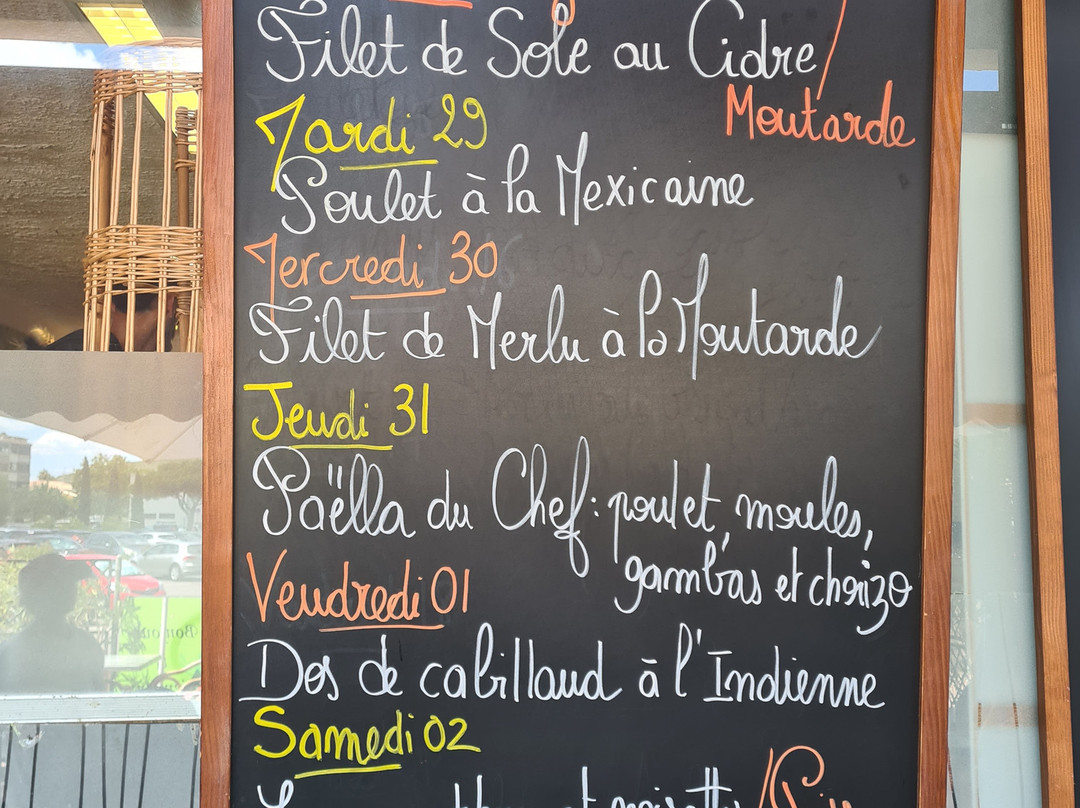 Filet de Sole au Cidre /
Moutarde
Mardi 29
Poulet à la Mexicaine
Mercredi 30
Filet de Merlu à la Moutarde
Jeudi 31
Paëlla du Chef : poulet, moules,
gambas et chorizo
Vendredi 01
Dos de cabillaud à l'Indienne
Samedi 02